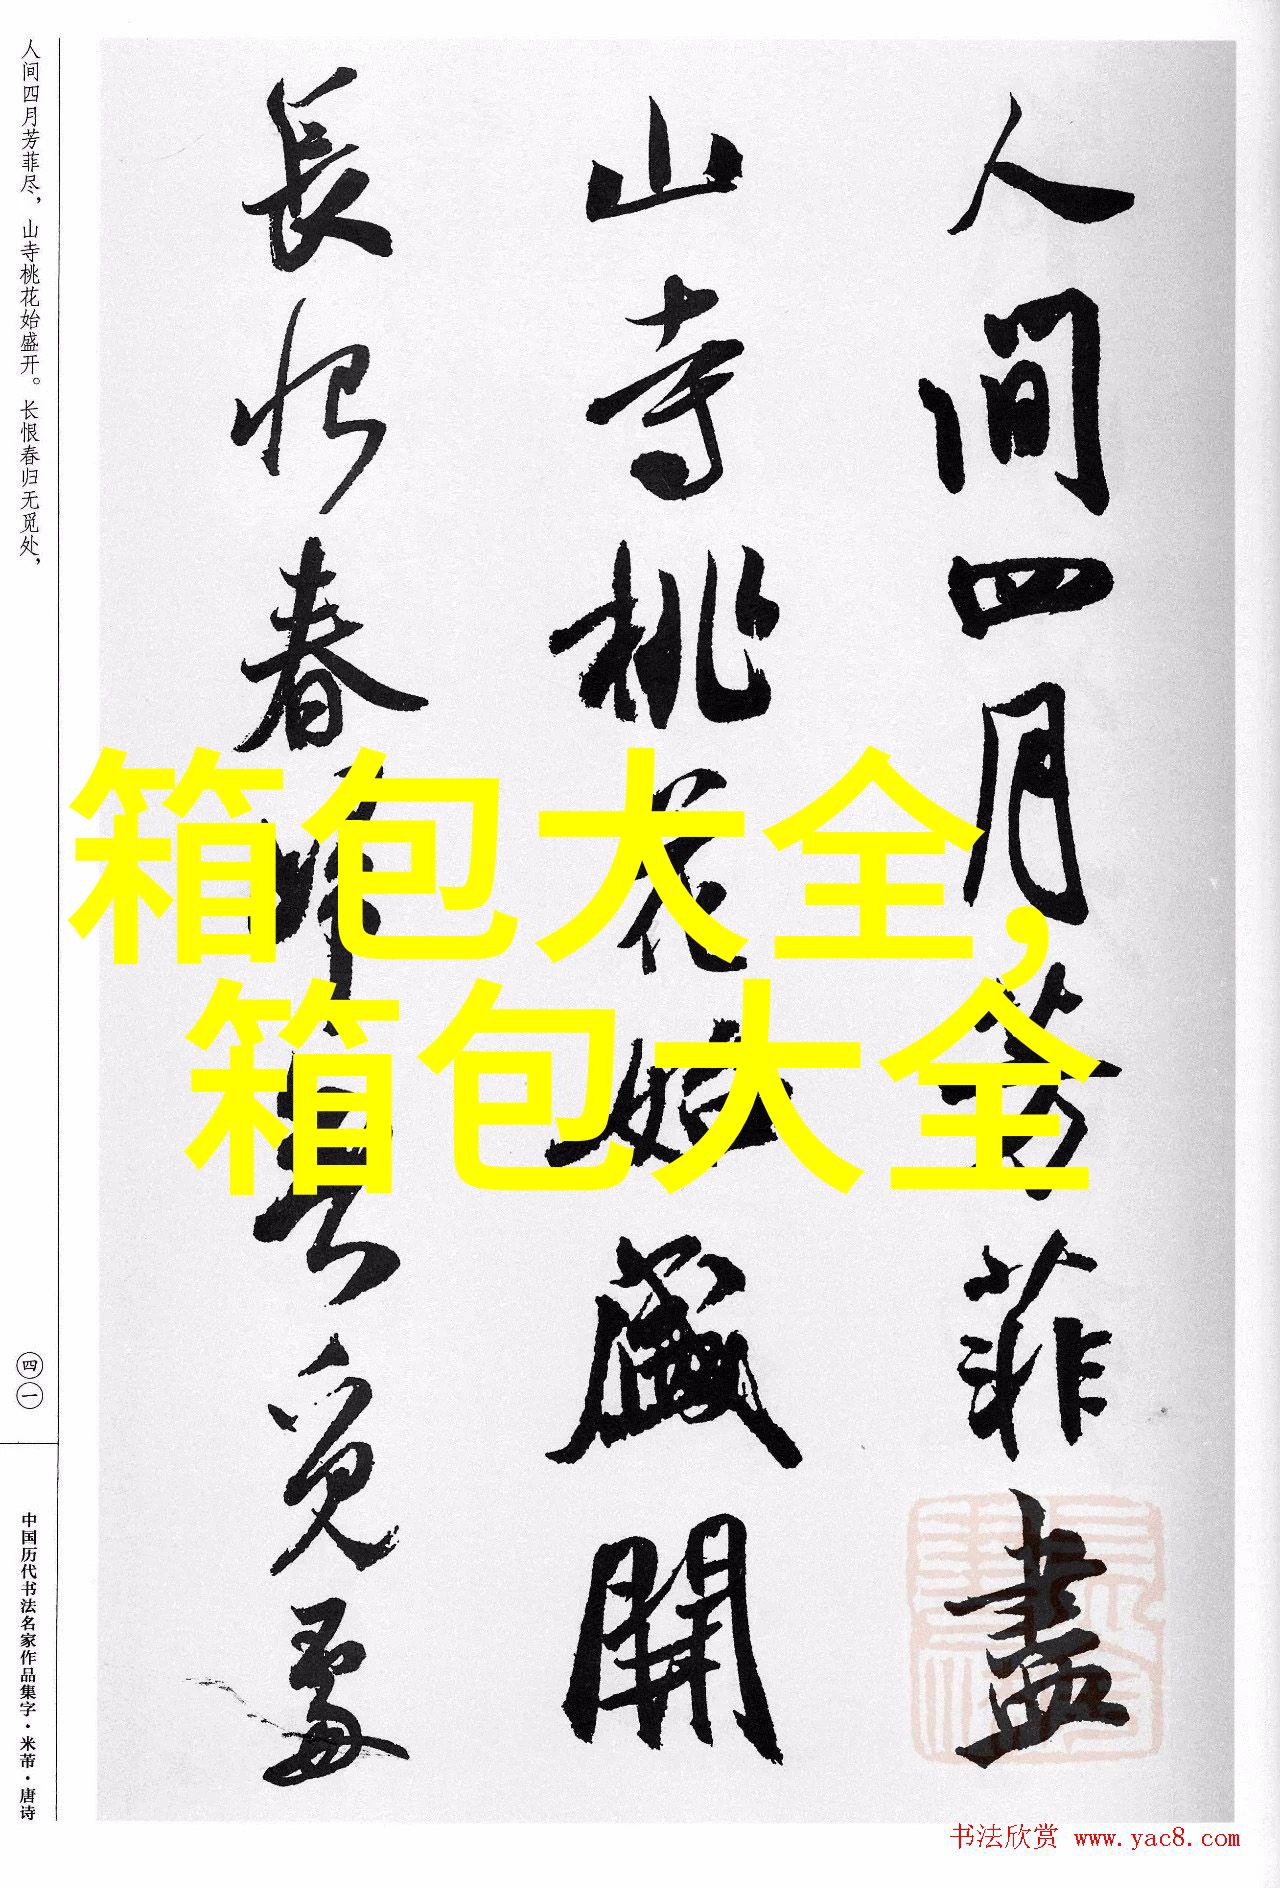 人間四月芳菲盡
山寺桃花始盛開
長恨春歸無覓處
人间四月芳菲尽，山寺桃花始盛开。长恨春归无觅处，
四一
中国历代书法名家作品集字·米芾·唐诗
箱包大全，
箱包大全
书法欣赏 www.yac8.com